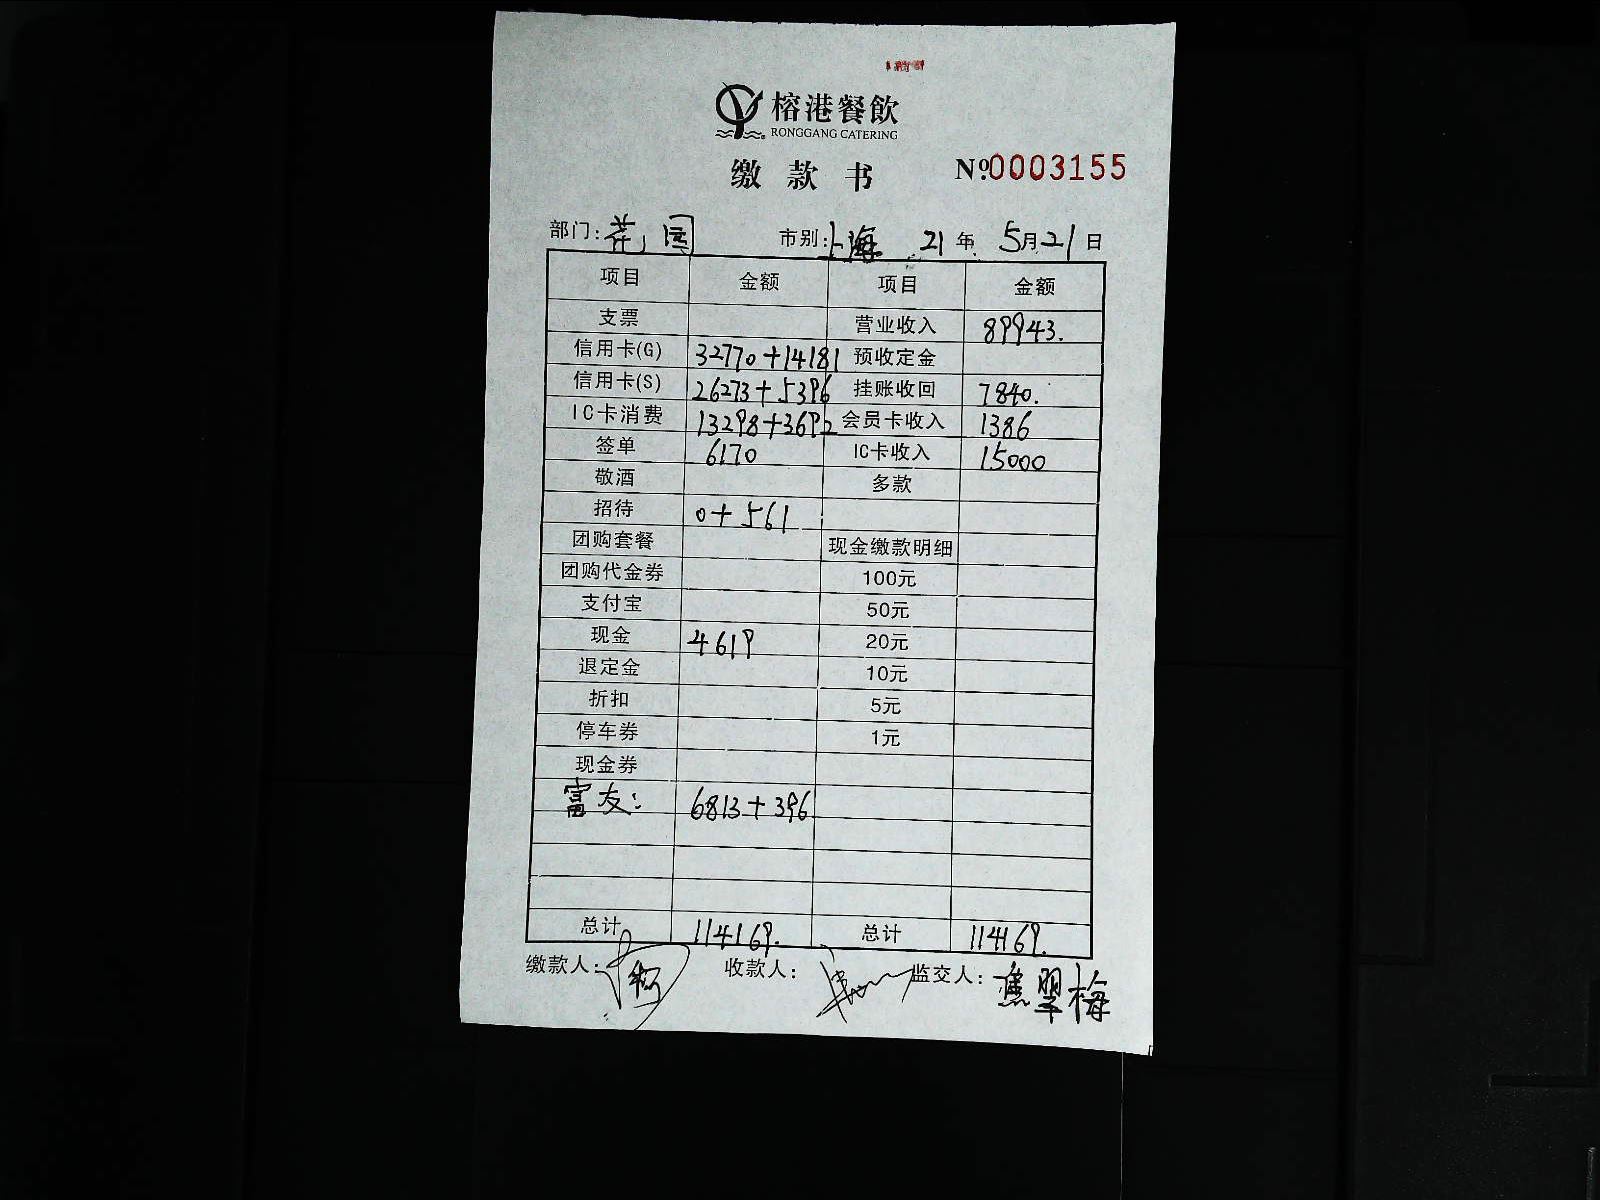 榕港餐飲
RONGGANG CATERING
缴款书 №0003155
部门: 花园 市别: 上海 21年 5月21日
项目 金额 项目 金额
支票 营业收入 89943.
信用卡(G) 32770+14181 预收定金
信用卡(S) 26273+5396 挂账收回 7840.
IC卡消费 13298+3692 会员卡收入 1386
签单 6170 IC卡收入 15000
敬酒 多款
招待 0+561
团购套餐 现金缴款明细
团购代金券 100元
支付宝 50元
现金 4619 20元
退定金 10元
折扣 5元
停车券 1元
现金券
富友: 6813+396
总计 114169. 总计 114169.
缴款人: 收款人: 监交人: 焦翠梅